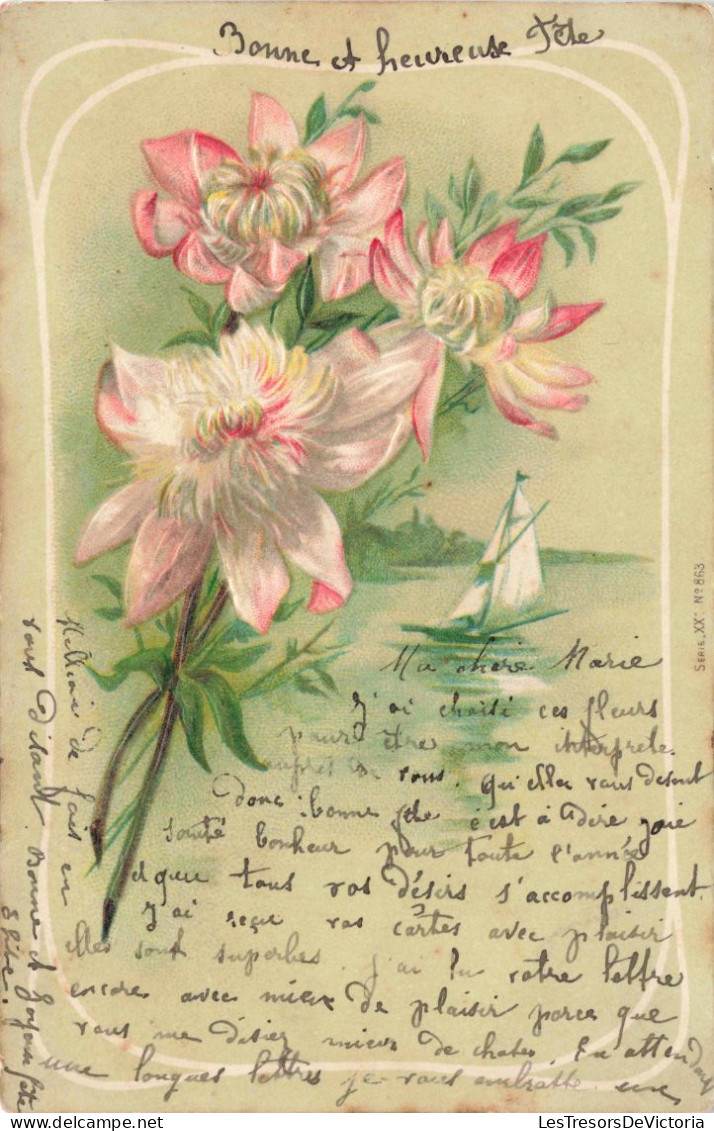 Bonne et heureuse Fête
SERIE XX. No 863
Ma chère Marie
J'ai choisi ces fleurs
pour être mon interprete
auprès de vous. qu'elles vous disent
donc : bonne fête c'est à dire joie
santé bonheur pour toute l'année
et que tous vos désirs s'accomplissent.
J'ai reçu vos cartes avec plaisir
elles sont superbes. j'ai lu votre lettre
encore avec mieux de plaisir parce que
vous me disiez mieux de choses. En attendant
une longues lettres je vous embrasse
de fois en
vous disant Bonne et Joyeuse fête
LesTresorsDeVictoria
www.delcampe.net